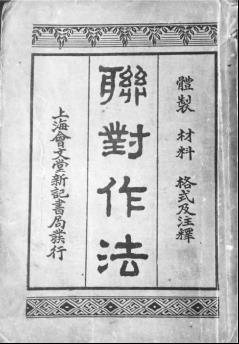 體製 材料 格式及注釋
聯對作法
上海會文堂新記書局發行